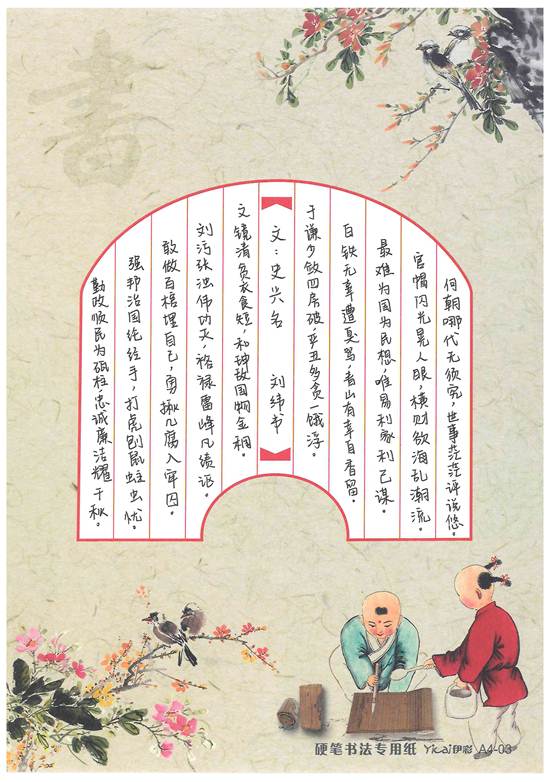 書
何朝哪代无须究，世事茫茫评说悠。
官帽闪光晃人眼，横财欲海乱潮流。
最难为国为民想，唯易利家利己谋。
白铁无辜遭臭骂，青山有幸自香留。
于谦少敛四房破，辛丑多贪一饿浮。
文：史兴名 刘纬书
文镜清贫衣食短，和珅敌国烟金稠。
刘污张浊伟功灭，裕禄雷峰凡绩讴。
敢做百棺埋自己，勇揪几腐入牢囚。
强邦治国纯经手，打虎刨鼠蛀虫忧。
勤政顺民为砥柱，忠诚廉洁耀千秋。
硬笔书法专用纸 Yicai伊彩 A4-03